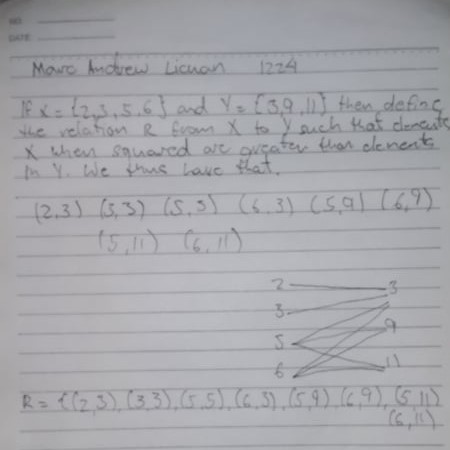 NO.
DATE
Marc Andrew Licnan 1224
If X = {2,3,5,6} and Y = {3,9,11} then define
the relation R from X to Y such that elements
X when squared are greater than elements
in Y. We thus have that.
(2,3) (3,3) (5,3) (6,3) (5,9) (6,9)
(5,11) (6,11)
2 3
3
5 9
6 11
R = {(2,3), (3,3), (5,5), (6,3), (5,9) (6,9), (5,11)
(6,11)